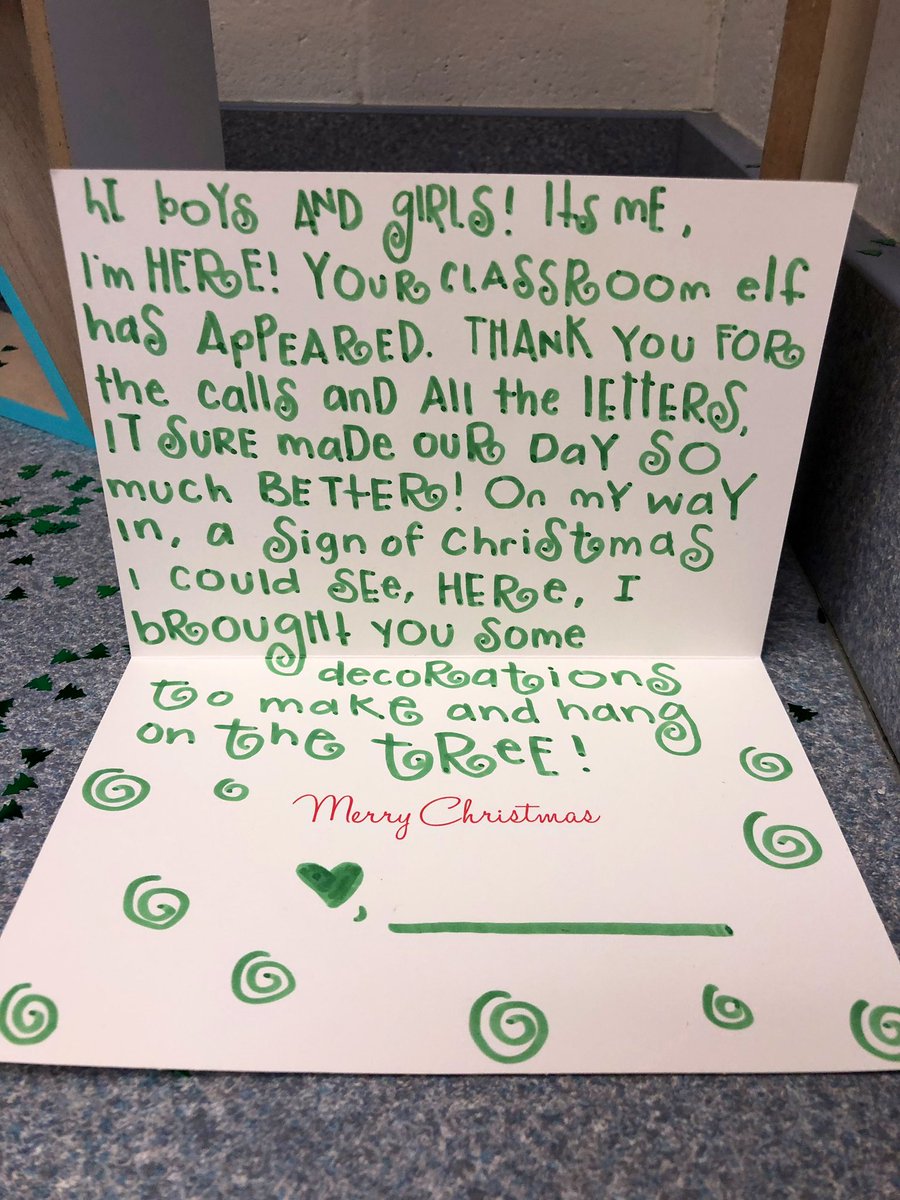 hI boYs AND gIRLS! Its mE,
I'm HERE! YOUR CLASSROOm elf
has APPEARED. THANK YOU FOR
the calls anD All the lEttERS,
IT SURE maDe OUR Day SO
much BETtER! On mY waY
in, a Sign of ChriStmas
I COULD SEe, HERe, I
bROUgHt YOU Some
decoRations
to make and hang
on the tREE!
Merry Christmas
♥, ___________